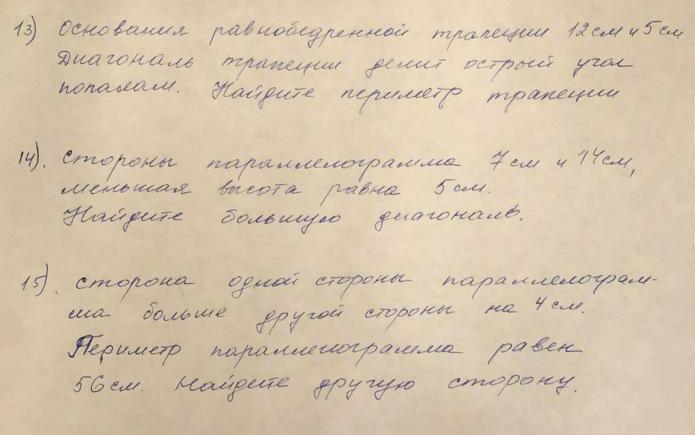 13) Основания равнобедренной трапеции 12 см и 5 см
Диагональ трапеции делит острый угол
пополам. Найдите периметр трапеции
14). Стороны параллелограмма 7 см и 14 см,
меньшая высота равна 5 см.
Найдите большую диагональ.
15). сторона одной стороны параллелограм-
ма больше другой стороны на 4 см.
Периметр параллелограмма равен
56 см. Найдите другую сторону.